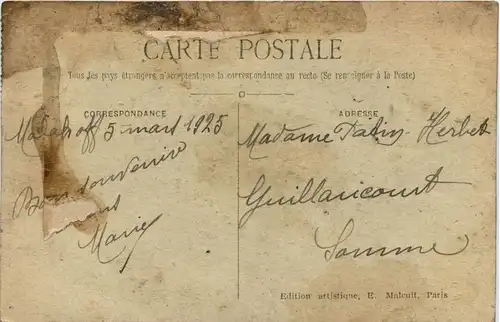 CARTE POSTALE
Tous les pays étrangers n'acceptent pas la correspondance au recto (Se renseigner à la Poste)
CORRESPONDANCE
5 mars 1925
Bon souvenire
Marie
ADRESSE
Madame Patin-Herbet
Guillaucourt
Somme
Edition artistique, E. Malcuit, Paris